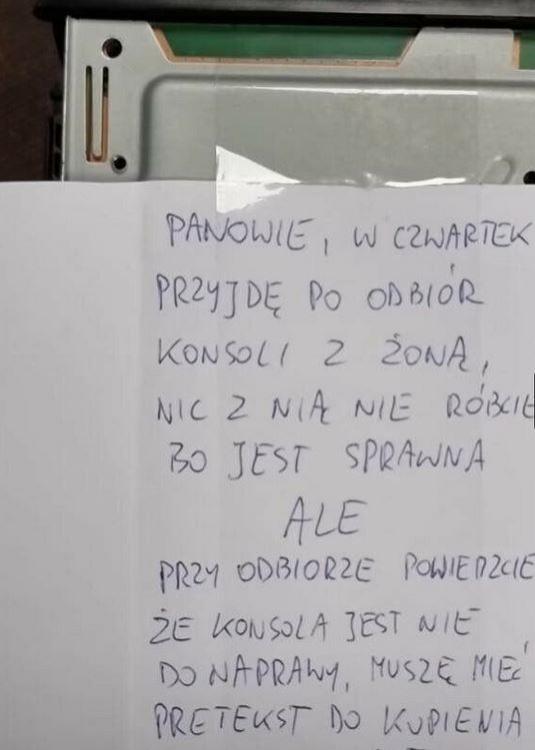 PANOWIE, W CZWARTEK
PRZYJDĘ PO ODBIÓR
KONSOLI Z ŻONĄ,
NIC Z NIĄ NIE RÓBCIE
BO JEST SPRAWNA
ALE
PRZY ODBIORZE POWIEDZCIE
ŻE KONSOLA JEST NIE
DO NAPRAWY, MUSZĘ MIEĆ
PRETEKST DO KUPIENIA